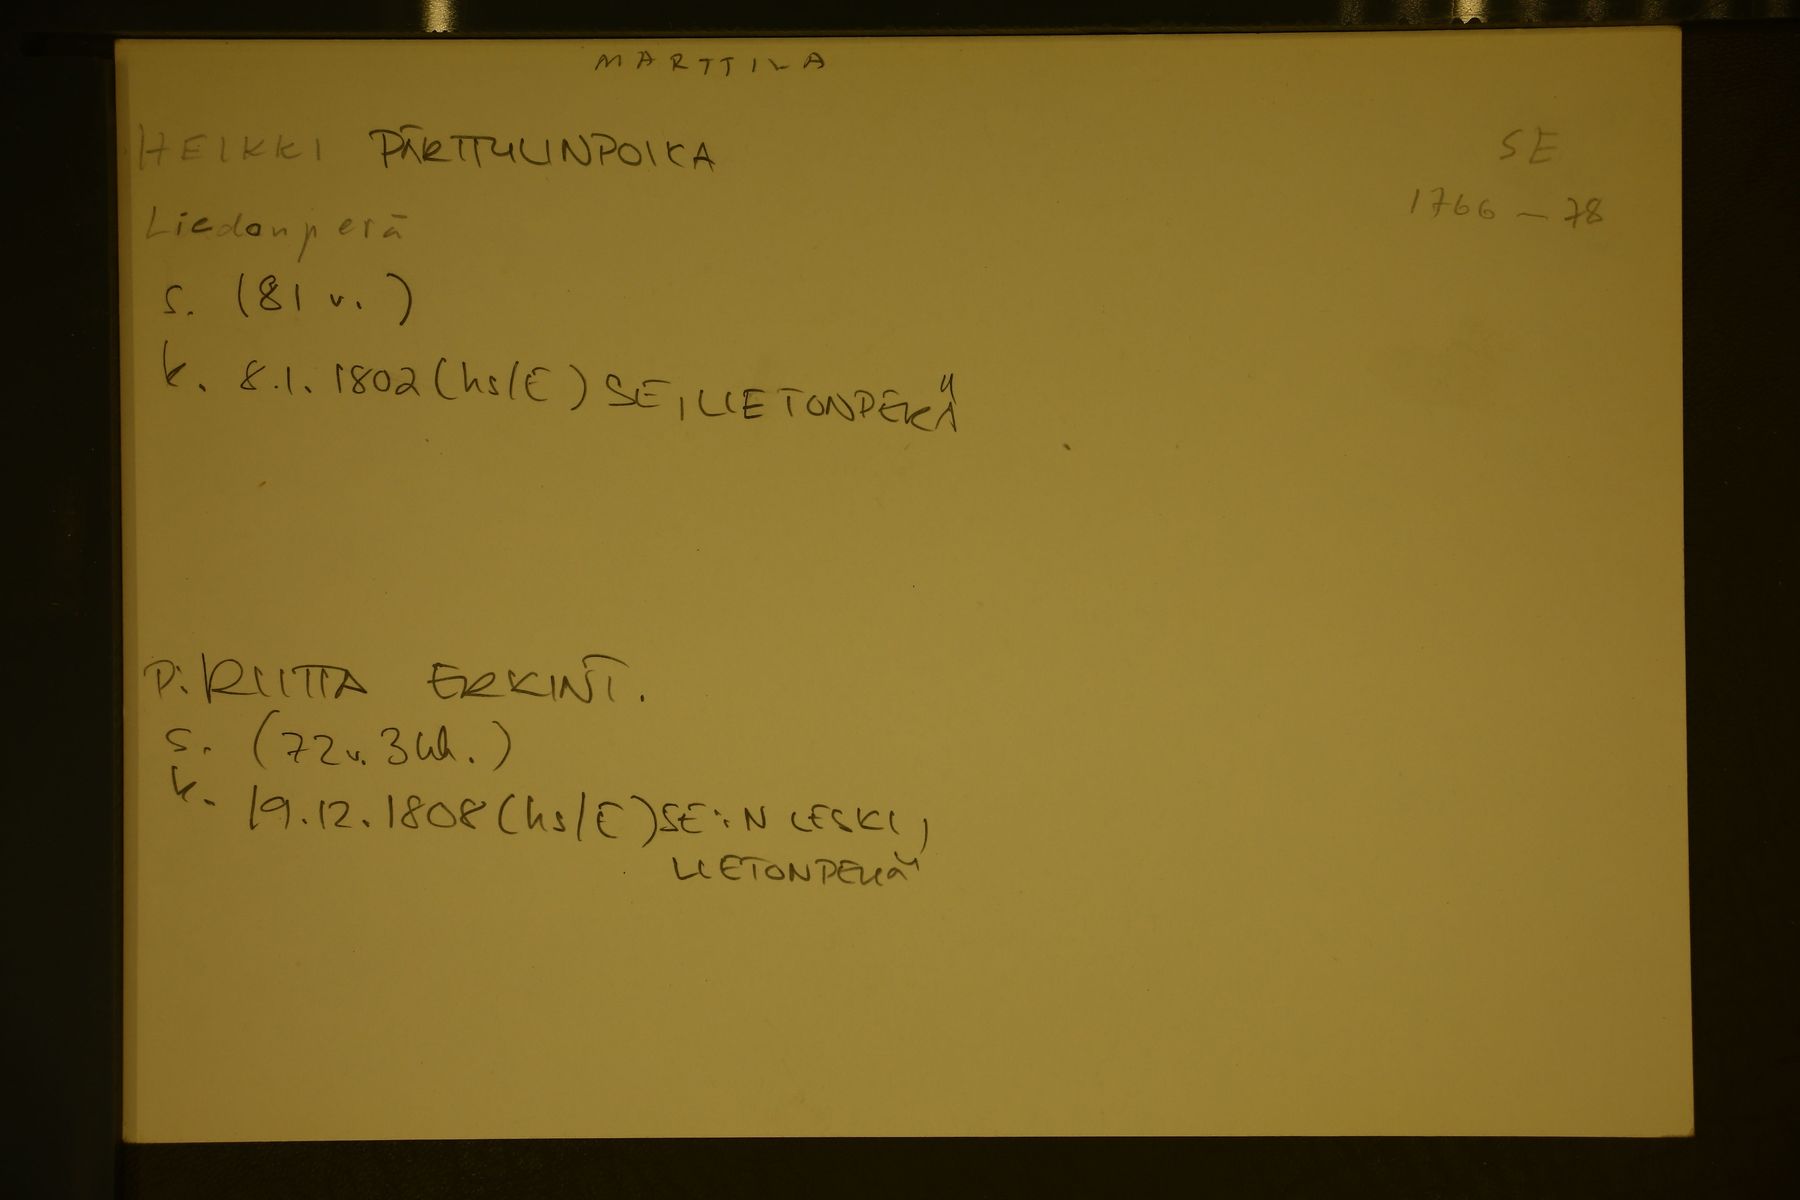 MARTTILA
HEIKKI PÄRTTULINPOIKA
SE
1766-78
Liedonperä
s. (81 v.)
k. 8.1.1802 (hs/E) SE, LIETONPERÄ
P. RIITTA ERKINT.
s. (72 v. 3 kk.)
k. 19.12.1808 (hs/E) SE:N LESKI,
LIETONPERÄ